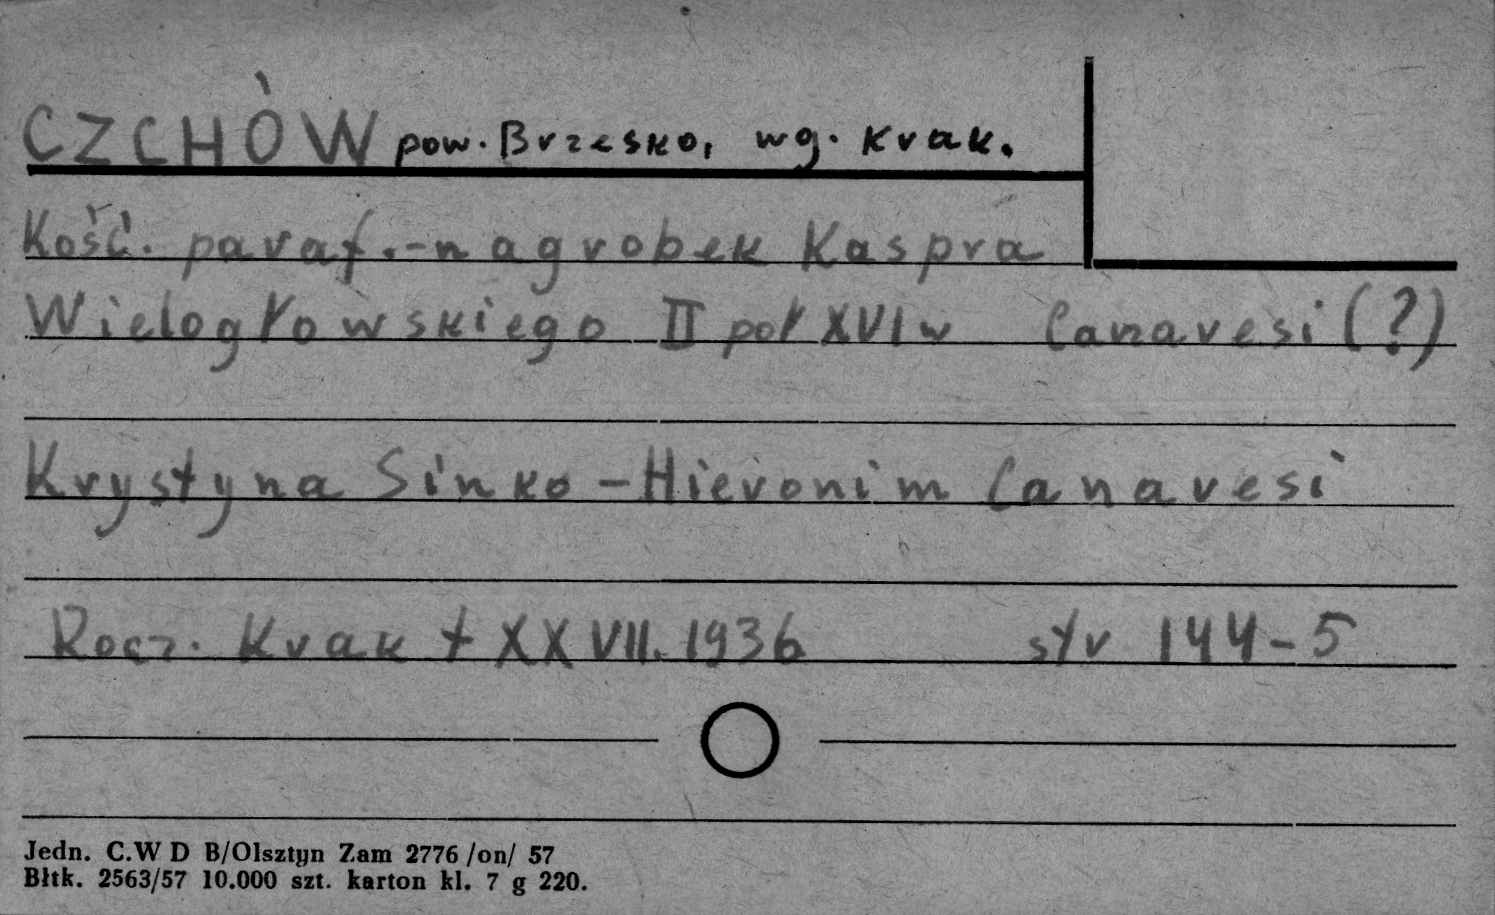 CZCHÓW pow. Brzesko, wg. Krak.
Kość. paraf. - nagrobek Kaspra
Wielogłowskiego II poł XVI w Canavesi (?)
Krystyna Sinko - Hieronim Canavesi
Rocz. Krak t XXVII. 1936 str 144-5
Jedn. C.W D B/Olsztyn Zam 2776 /on/ 57
Błtk. 2563/57 10.000 szt. karton kl. 7 g 220.